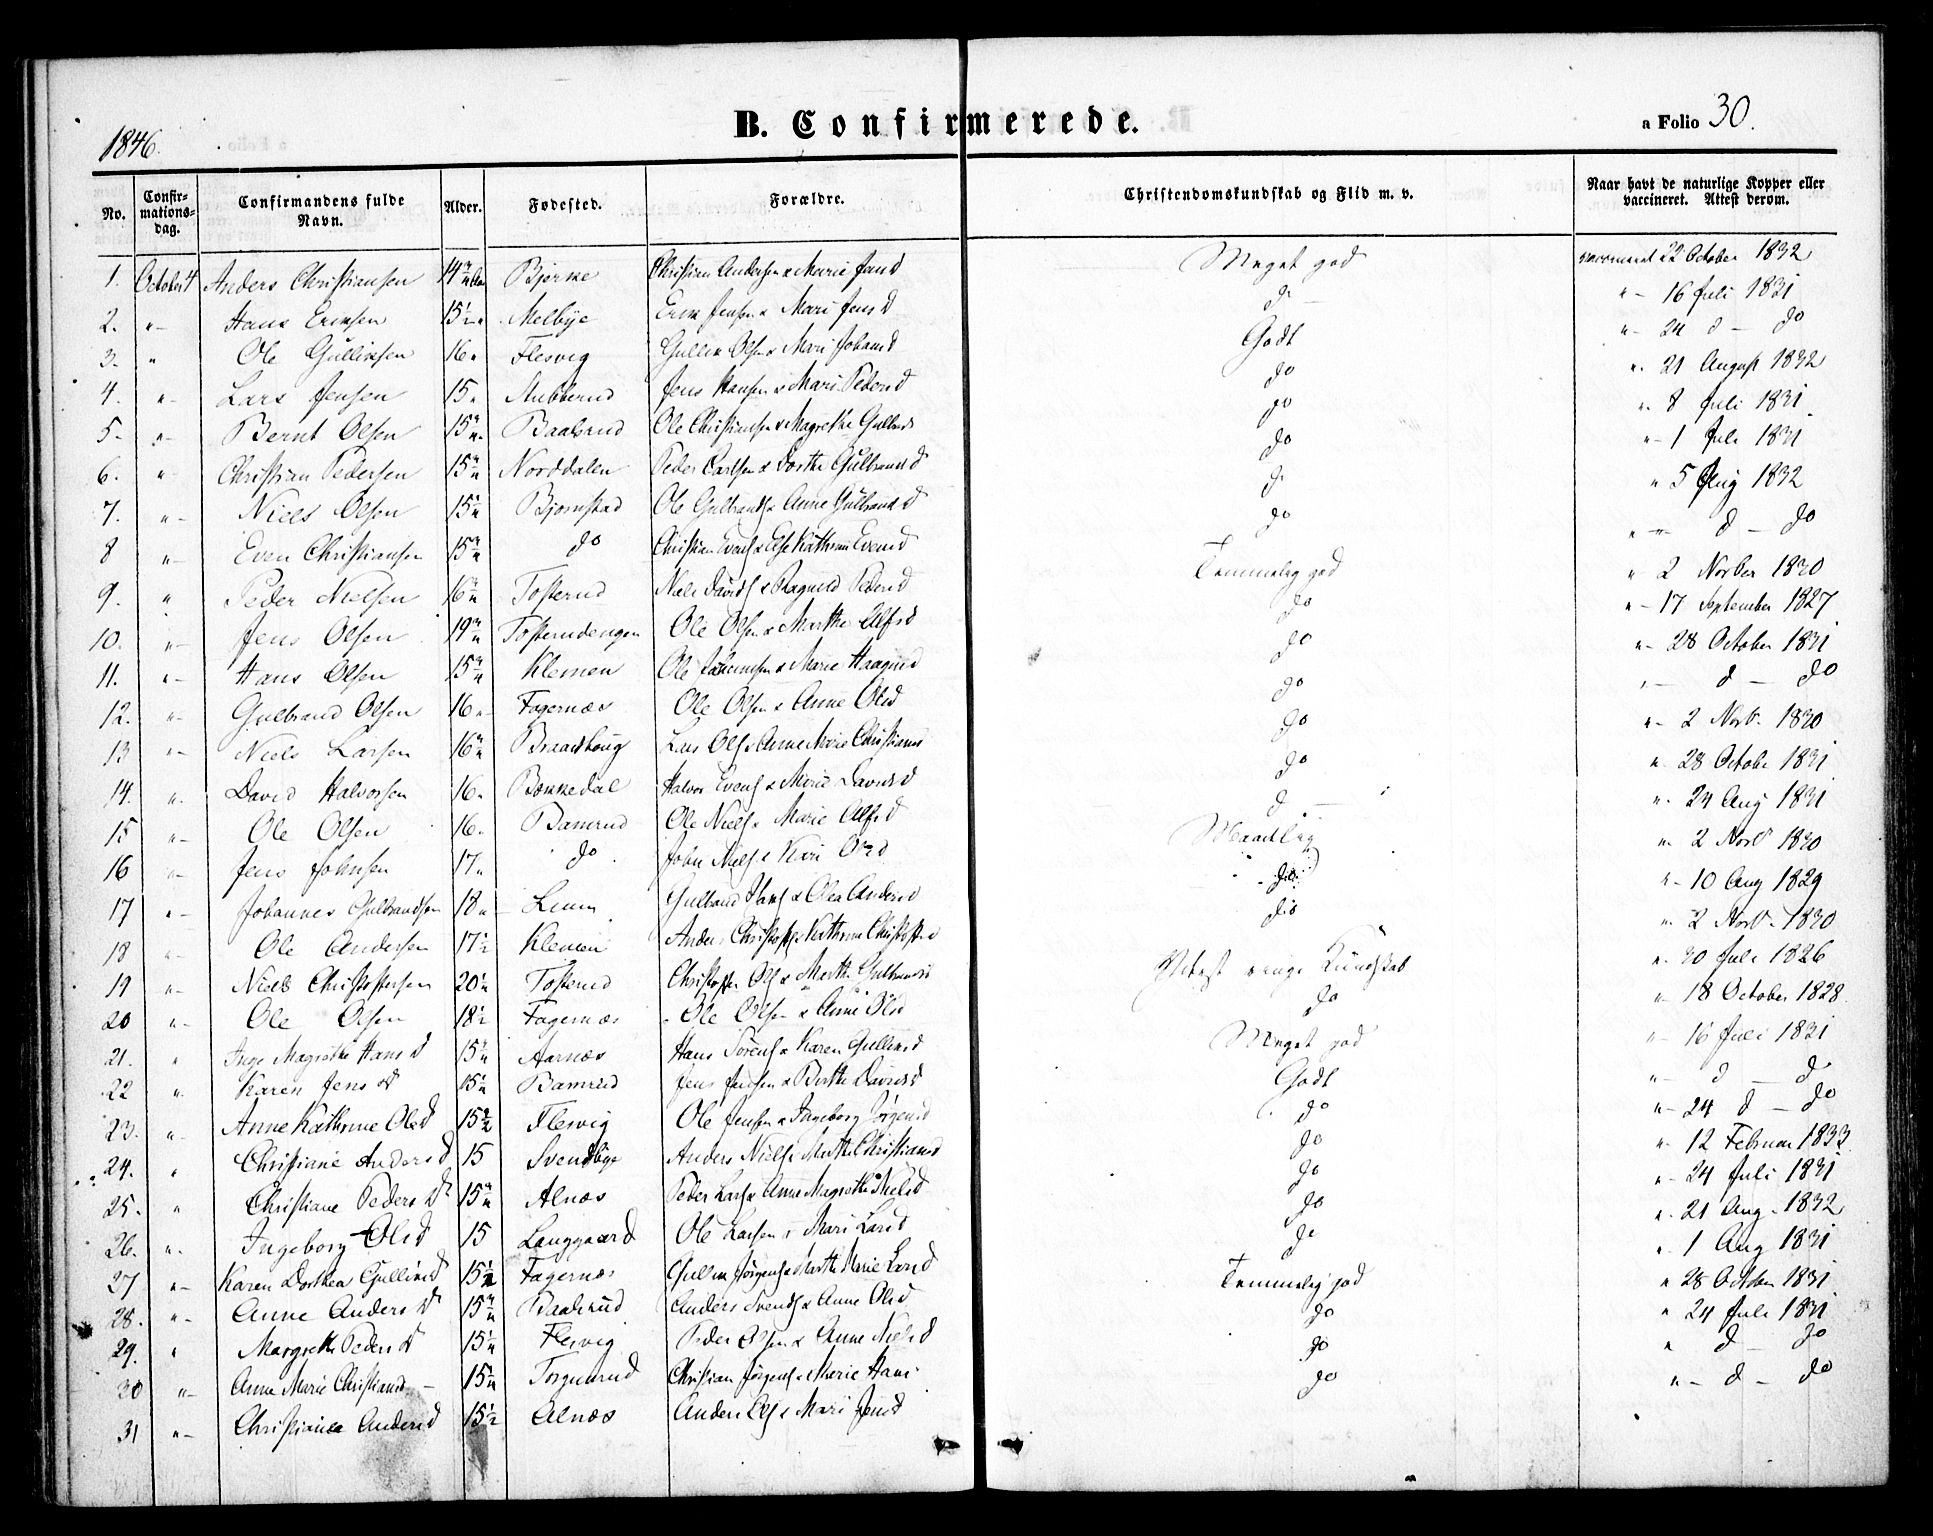 1846.
B. Confirmerede.
a Folio 30.
No. Confirmations-dag. Confirmandens fulde Navn. Alder. Fødested. Forældre. Christendomskundskab og Flid m. v. Naar havt de naturlige Kopper eller vaccineret. Attest derom.
1. October 4 Anders Christiansen 14 Bjerke Christian Andersen & Marie Jensd Meget god 22 October 1832
2. "– Hans Eriksen 15½ Melbye Erik Jensen & Mari Jensd d– "– 16 Juli 1831
3. " Ole Gulliksen 16 Flesvig Gullik Olsen & Mari Johansd Godt "– 24 d – do
4. "– Lars Jensen 15 Stubberud Jens Hansen & Mari Pedersd do ". 21 August 1832
5. "– Bernt Olsen 15 Baalsrud Ole Christiansen & Magrethe Gulliksd do ". 8 Juli 1831
6. "– Christian Pedersen 15 Norddalen Peder Carlsen & Dorthe Gulbrandsd do "– 1 Juli 1831
7. "– Niels Olsen 15 Bjørnstad Ole Gulbrands & Anne Gulbrandsd d– " 5 Aug 1832
8 "– Even Christiansen 15 do Christian Evens & Else Kathrine Evensd do "– d – do
9. " Peder Nielsen 16 Tosterud Niels Davids & Ragnild Pedersd Temmelig god "– 2 Novber 1830
10. "– Jens Olsen 19 Tosterudengen Ole Olsen & Marthe Alfsd do "– 17 September 1827
11. "– Hans Olsen 15 Klemen Ole Johannesen & Marie Haagensd do "– 28 October 1831
12. "– Gulbrand Olsen 16 Fagernæs Ole Olsen & Anne Olsd do "– d – do
13 "– Niels Larsen 16 Braadhoug Lars Ols & Anne Marie Christiansd do "– 2 Novb. 1830
14. ". David Halvorsen 16 Bækkedal Halvor Evens & Marie Davidsd do ". 28 Octobe 1831
15 "– Ole Olsen 16 Bamrud Ole Niels & Marie Alfsd d – ". 24 Aug 1831
16 "– Jens Johnsen 17 do John Niels & Kari Olsd Maadelig ". 2 Novb 1830
17 "– Johannes Gulbrandsen 18 Leum Gulbrand Hans & Olea Andersd do "– 10 Aug 1829
18 "– Ole Andersen 17½ Klemen Anders Christoffers & Kathrine Christoffersd do ". 2 Novb. 1830
19 "– Niels Christoffersen 20 Tosterud Christoffer Ols & Marthe Gulbrandsd ringe Kundskab ". 30 Juli 1826
20 "– Ole Olsen 18½ Fagernæs Ole Olsen & Anne Olsd do "– 18 October 1828
21. " Inge Magrethe Hansd 15 Aarnæs Hans Sørens & Karen Gulliksd Meget god "– 16 Juli 1831
22 " Karen Jensd 15 Bamrud Jens Jensen & Berthe Davidsd Godt "– d – d
23. "– Anne Kathrine Olsd 15 Flesvig Ole Jensen & Ingeborg Jørgensd do "– 24 d – do
24. " Christiane Andersd 15 Svendbye Anders Niels & Marthe Christiansd do ". 12 Februar 1833
25. " Christiane Pedersd 15 Alnæs Peder Lars & Anne Magrethe Nielsd do "– 24 Juli 1831
26. ". Ingeborg Olsd 15 Langgaard Ole Larsen & Mari Larsd do ". 21 Aug. 1832
27 "– Karen Dorthea Gulliksd 15½ Fagernæs Gullik Jørgens & Marthe Marie Larsd do ". 1 Aug 1831
28. "– Anne Andersd 15 Baalsrud Anders Svends & Anne Olsd Temmelig god " 28 October 1831
29. " Margrethe Pedersd 15 Flesvig Peder Olsen & Anne Nielsd do " 24 Juli 1831
30 "– Anne Marie Christiansd 15 Torgunrud Christian Jørgens & Marie Hans do " d – do
31 "– Christiane Andersd 15½ Alnæs Anders Ols & Mari Jensd do "– d – do